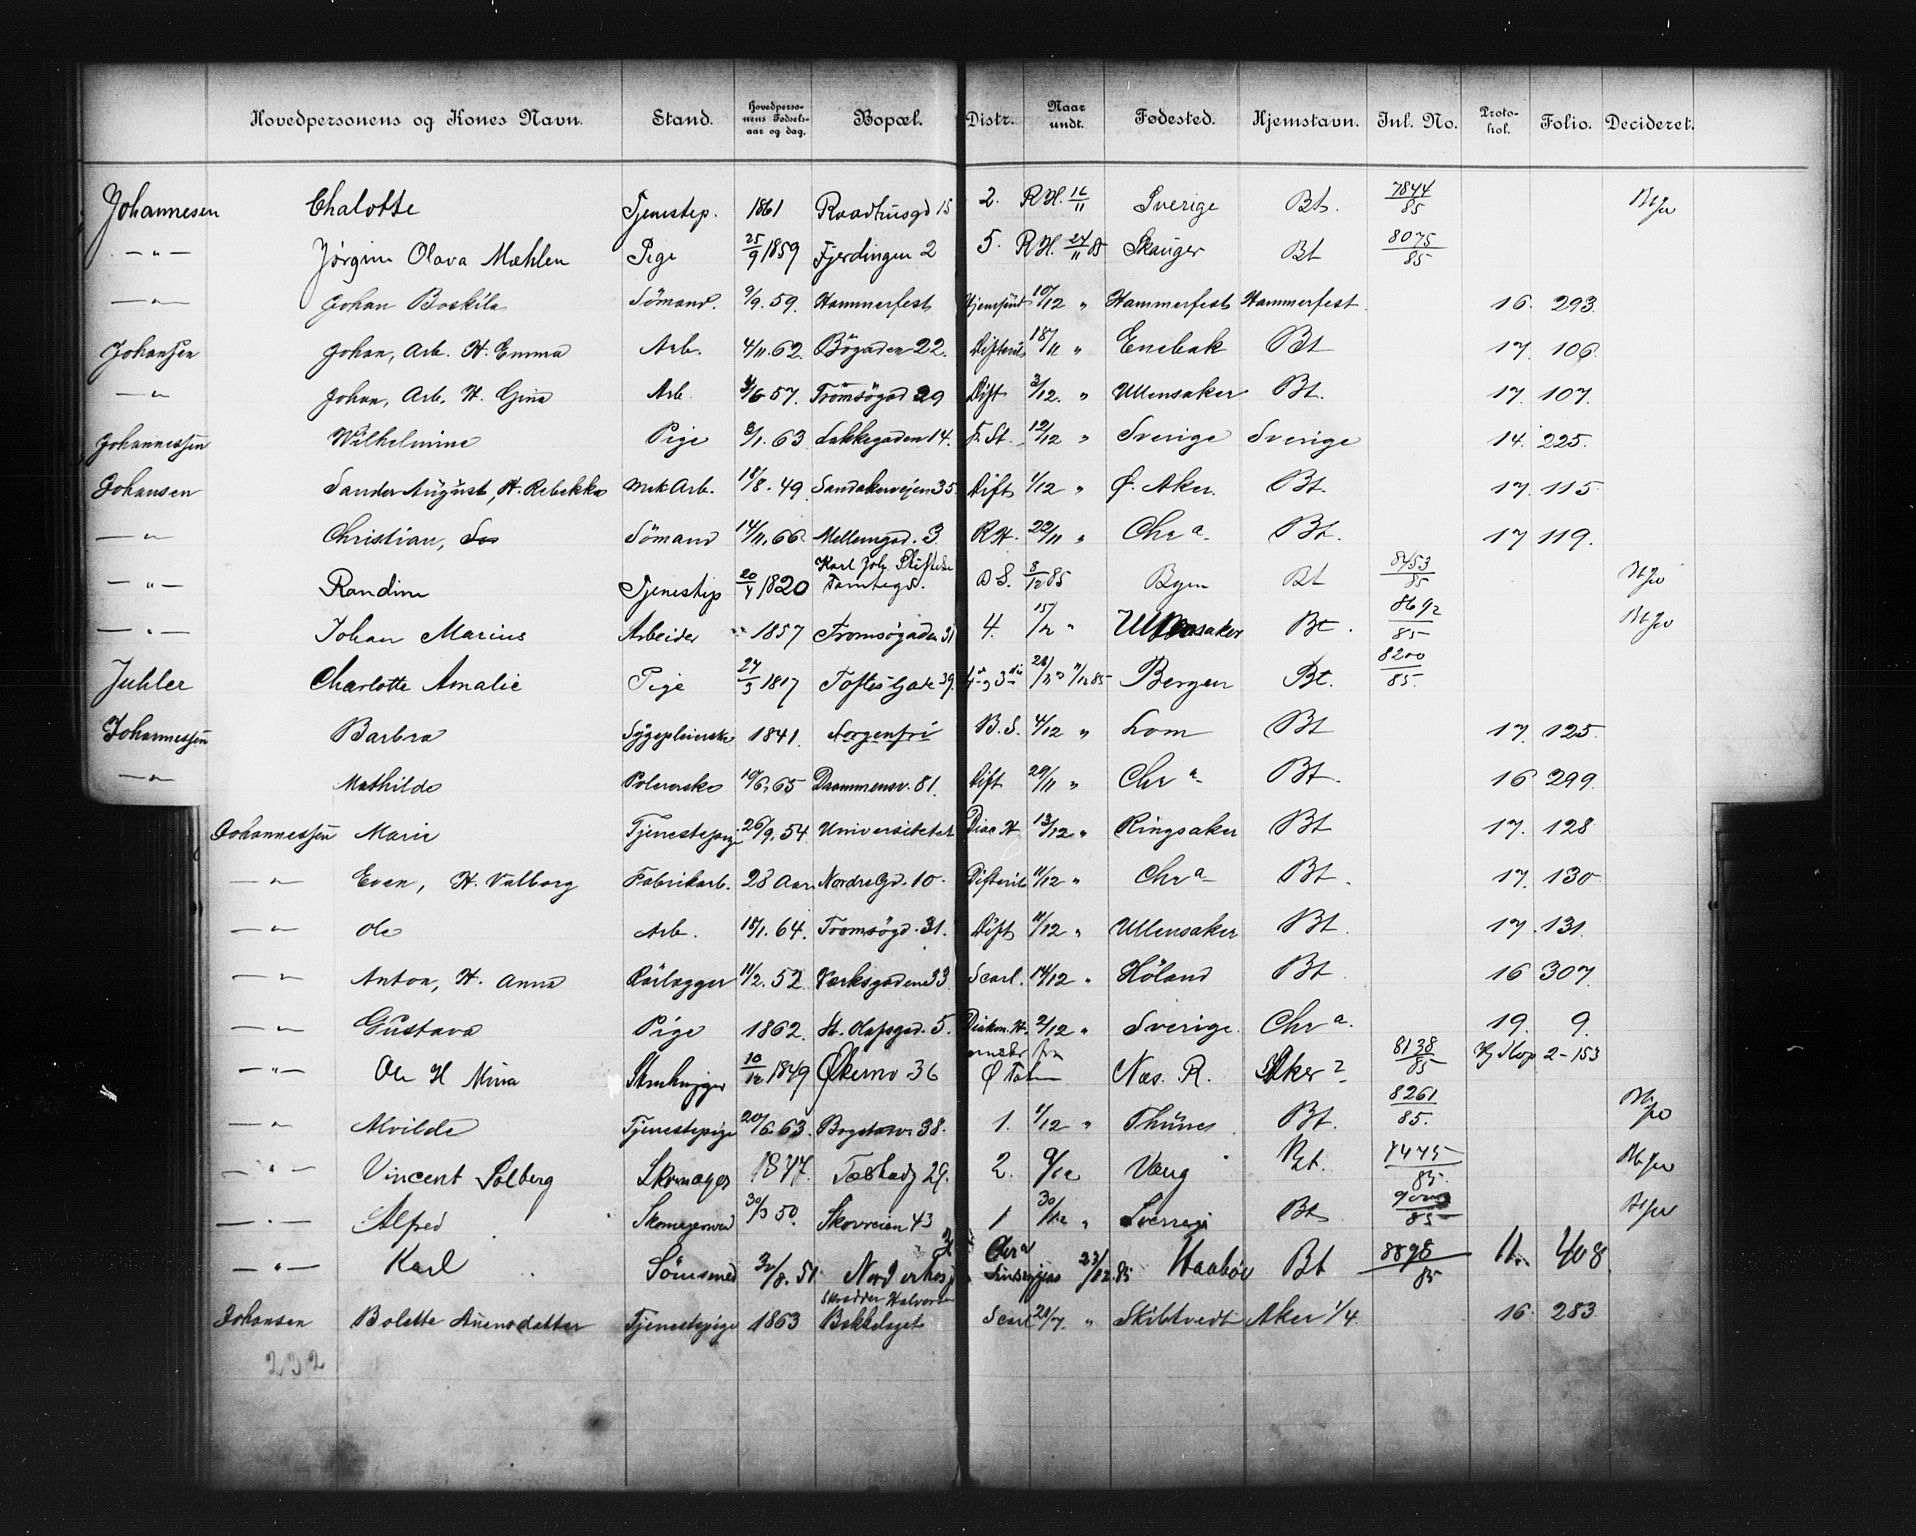 Hovedpersonens og Kones Navn. Stand. Hovedpersonens Fødselsaar og dag. Bopæl. Distr. Naar undt. Fødested. Hjemstavn. Jnl. No. Protohol. Folio. Decideret.
Johannesen Chalotte Tjenestep. 1861 Raadhusgd 15 2. R.H. 16/11 Sverige Bt. 7844/85
—"— Jørgine Olava Mæhlen Pige 25/9 1859 Fjerdingen 2 5. R.H. 24/11 85 Skauger Bt 8075/85
—"— Johan Boskila Sömand. 9/9. 59. Hammerfest 10/12 " Hammerfest Hammerfest 16. 293.
Johansen Johan, Arb. H. Emma Arb. 4/11. 62. Bögaden 22. Difterit 18/11 " Enebak Bt 17. 106.
—"— Johan, Arb. H. Gina Arb. 57. Tromsögad 29 Dift 3/12. " Ullensaker Bt. 17. 107.
Johannessen Wilhelmine Pige 63 Lakkegaden 14. F. St. 12/12 " Sverige Sverige 14. 225.
Johansen Sander August, H. Rebekka Mek Arb. 18/8. 49. Sandakerveien 35. Dift 1/12 " Ø. Aker. Bt. 17. 115
—"— Christian, Sömand 14/11. 66. Mellemgd. 3 R.H. 22/11 " Chr a. Bt. 17 119.
Karl Joh.
—"— Randine Tjenestep 20/4 1820 Tomtegd. D S. 8/12 85 Byen Bt 8453/85
—"— Johan Marius Arbeider 1857 Tromsøgaden 31 4. 15/12 " Ullensaker Bt. 8692/85
Juhler Charlotte Amalie Pige 27/3 1817 Toftes Gade 39. Bergen Bt. 8200/85.
Johannessen Barbra Sygepleierske 1841. Sorgenfri B. S. 4/12 " Lom Bt 17. 125.
—"— Mathilde Polererske 10/6. 65 Drammensv. 81. Dift 29/11 " Chr a Bt. 16 299.
Johannessen Marie Tjenestepige 26/9. 54. Universitetet Diac H 13/12 " Ringsaker Bt 17. 128
—"— Even, H. Valborg Fabrikarb. 28 Aar Nordre Gd. 10. Difterit 11/12 " Chr a Bt. 17. 130
—"— Ole Arb. 18/1. 64. Tromsögd. 31. Dift 11/12 " Ullensaker Bt. 17. 131.
—"— Anton, H. Anna Rörlægger 11/2. 52. Værksgadene 33. Scarl. 14/12 " Höland Bt 16 307.
—"— Gustava Pige 1862. St. Olafsgad. 5. Diakon. H. 2/12 " Sverige. Chr a. 19. 9.
—"— Ole H Mina Stenhugger 10/12 1849 Økernv 36 Næs. R. Aker ? 8138/85 2-153
—"— Alvilde Tjenestepige 20/6. 63. Bogstadv. 38. 1. 1/12 " Bt. 8261/85.
—"— Vincent Solberg Skomager 1847. 29. 2. 9/12 Vang Bt.
—"— Alfred Skomagersvend 50. Skovveien 43 1 30/12 " Bt
—"— Karl Sömsmed 8. 51. Chr a 23/12. 85 Bt 8898/85 11. 408.
Skrædder Halvorsen
Johansen Bolette Tjenestepige 1863 Bækkelaget Scarl " Skibtvedt Aker 1/4 16. 283.
232